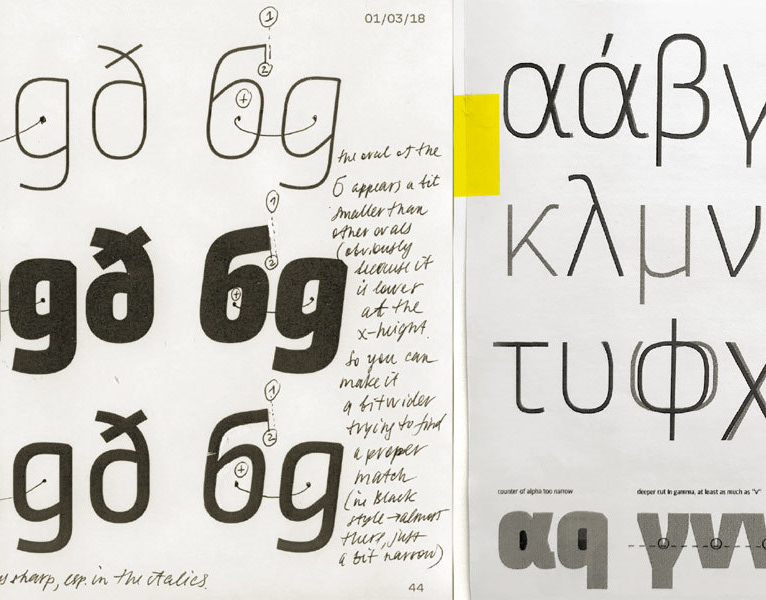 01/03/18
1
gð бg
2
+
the oval of the
б appears a bit
smaller than
other ovals
(obviously
because it
is lower
at the
x-height.
So you can
make it
a bit wider
trying to find
a proper
match
(in Black
style → almost
there, just
a bit narrow)
1
gð бg
2
+
1
gð бg
2
+
sharp, esp. in the italics.
44
αάβγ
κλμν
τυφχ
counter of alpha too narrow
deeper cut in gamma, at least as much as "V"
αq γvv